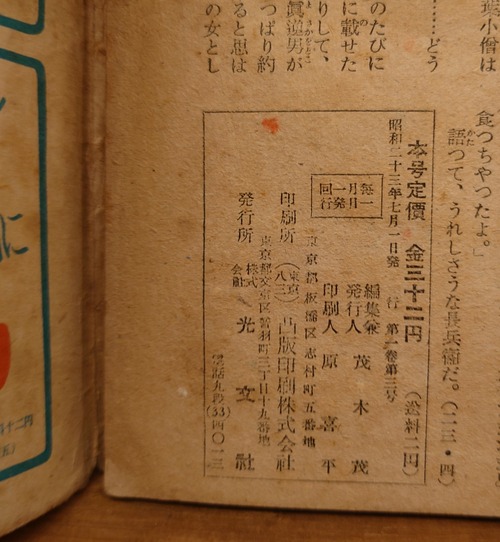 葉小僧は
食つちやつたよ。」
語つて、うれしさうな長兵衞だ。(二三・四)
……どう
のたびに
に載せた
りして、
眞道男が
つぱり約
ると思は
の女とし
本号定價 金三十二円 (送料二円)
昭和二十三年七月一日発行 第一卷第三号
毎月一回一日発行
編集兼発行人 茂木茂
印刷人 原喜平
東京都板橋区志村町五番地
印刷所 (東京八三) 凸版印刷株式会社
東京都文京区音羽町三丁目十九番地
発行所 株式会社 光文社
電話九段(33)四〇一三
に
十二円